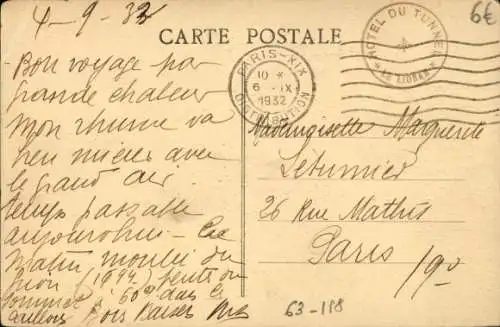 4-9-32
6€
CARTE POSTALE
HOTEL DU TUNNEL
LE LIORAN
PARIS-XIX
10 *
6 -IX
1932
DISTRIBUTION
Bon voyage par
grande chaleur
Mon rhume va
bien mieux avec
le grand air
temps passable
aujourd'hui - Ce
matin monté du
(1494) pente du
sommet 60% dans les
Bons Baisers
Mademoiselle Marguerite
Létumier
26 Rue Mathis
Paris
19e
63-118